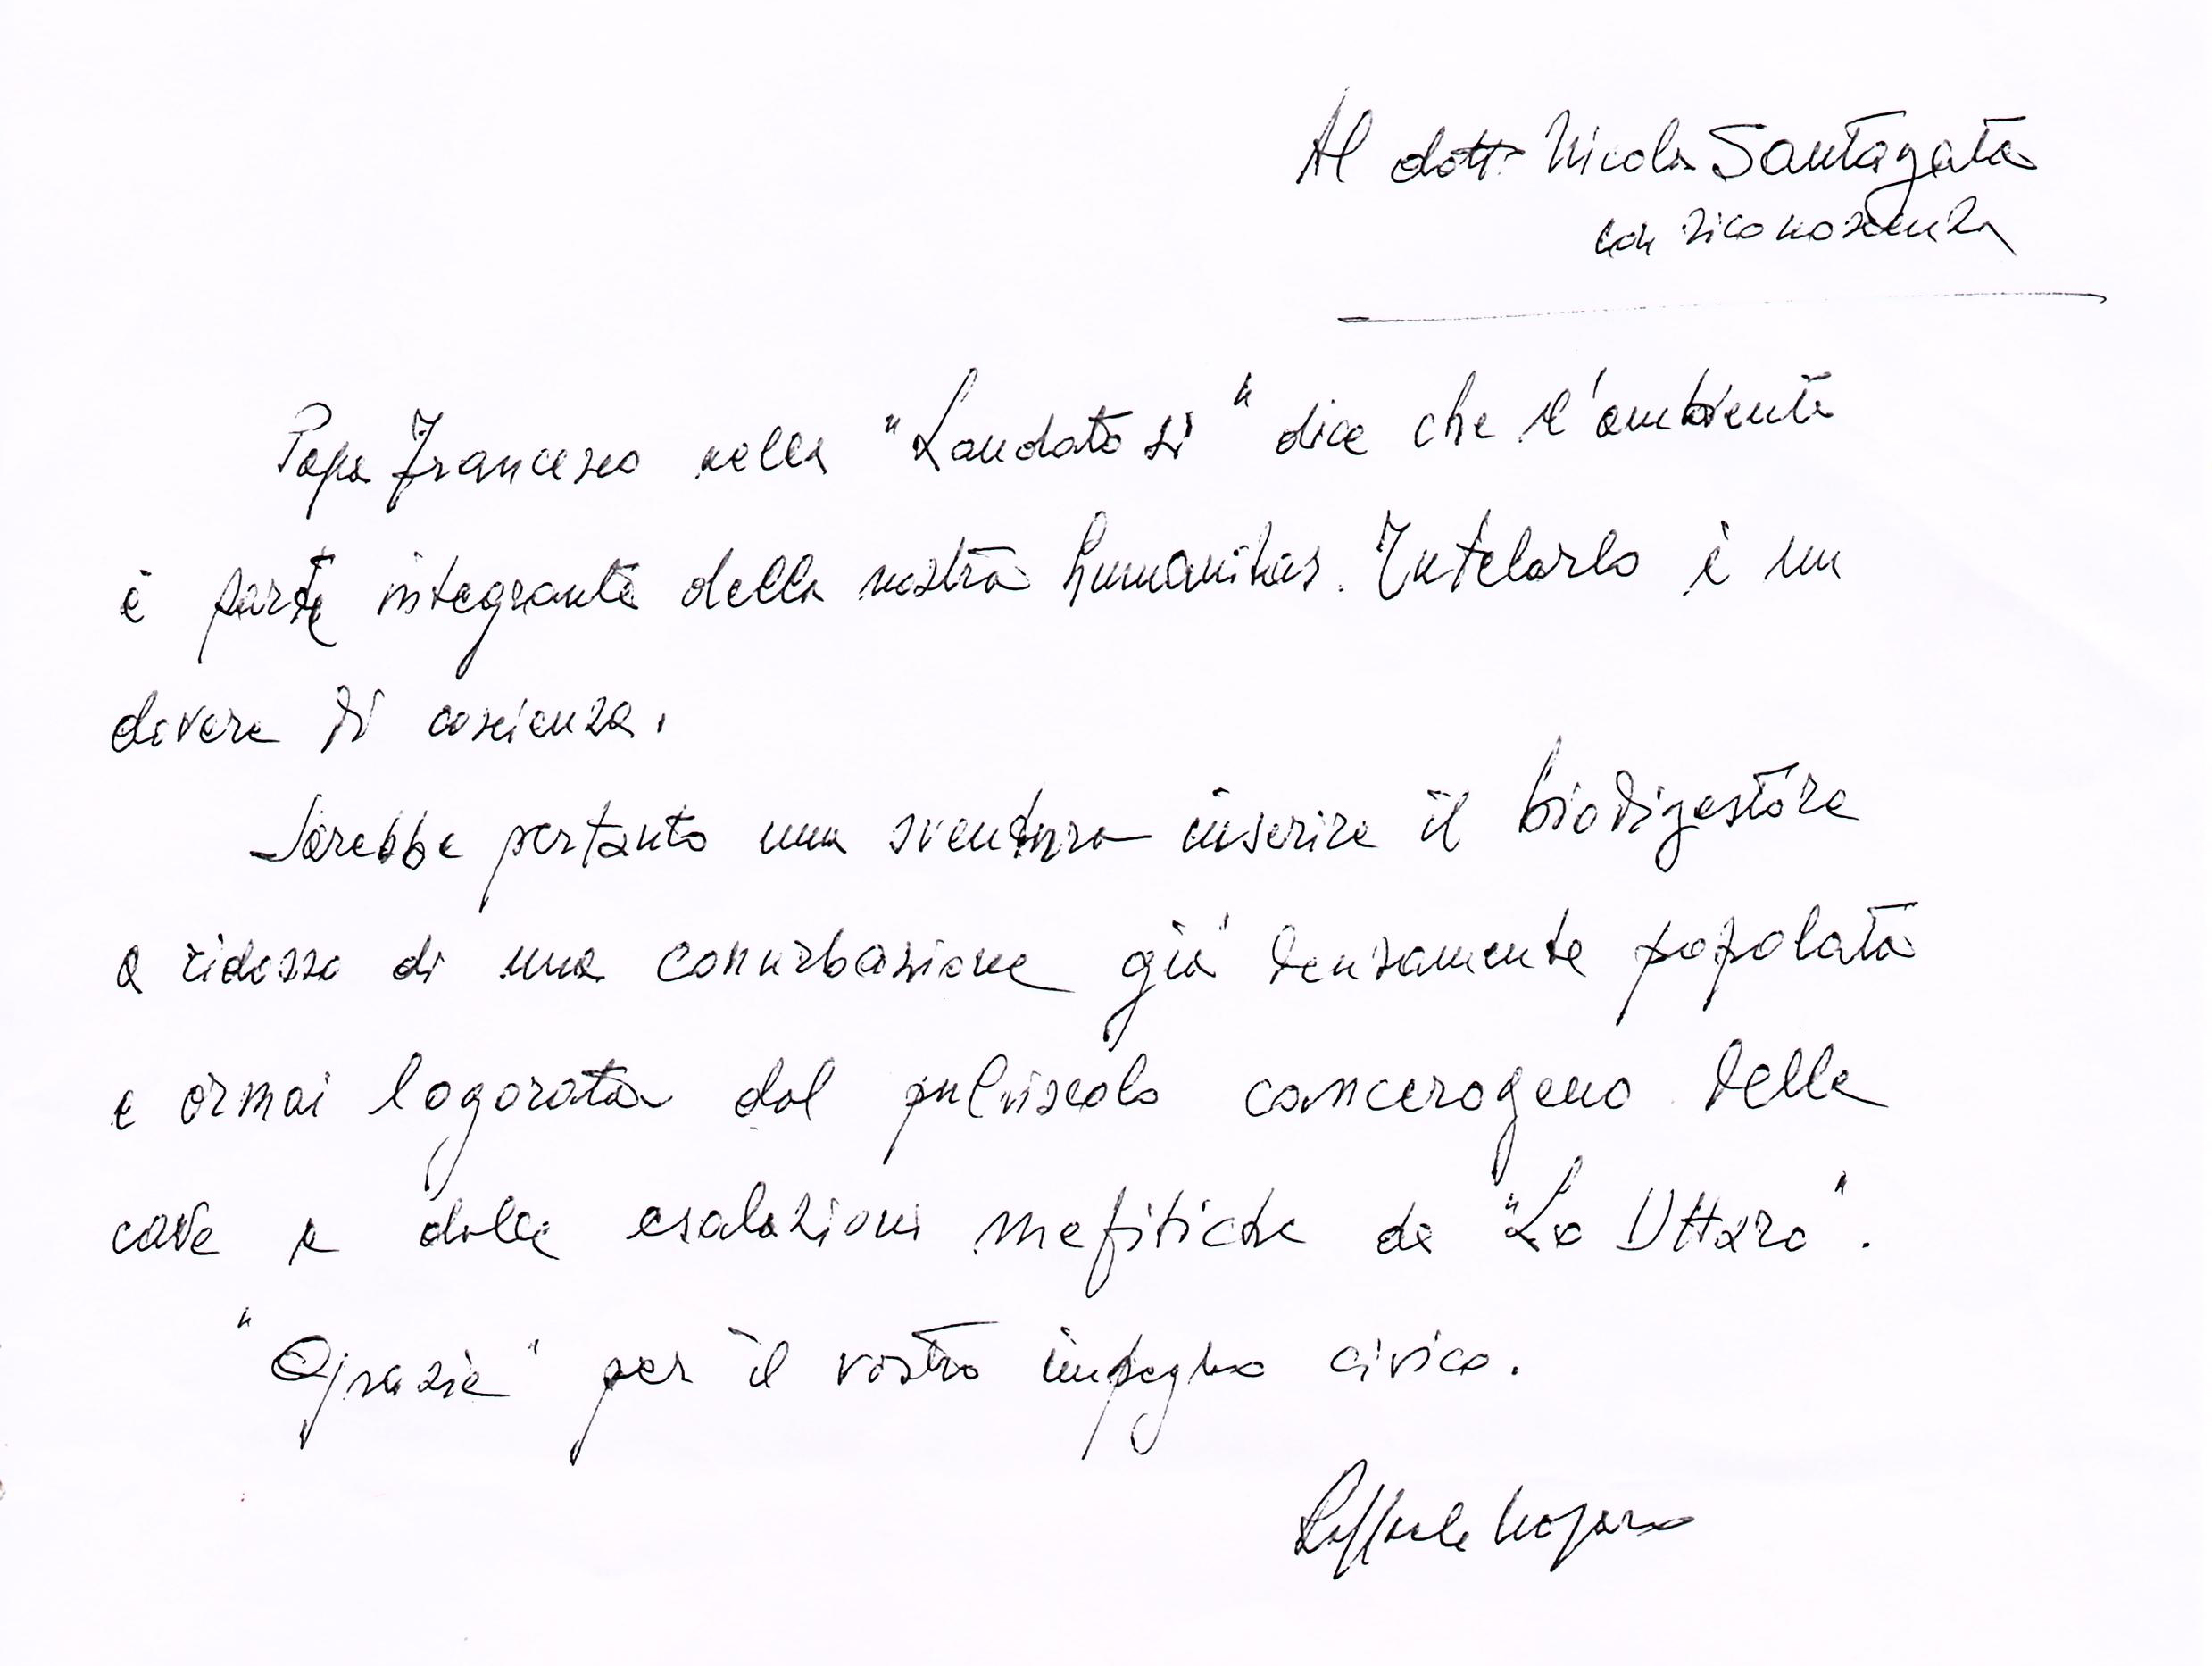 Al dott. Nicola Santagata
con riconoscenza
Papa Francesco nella "Laudato si'" dice che l'ambiente
è parte integrante della nostra humanitas. Tutelarlo è un
dovere di coscienza.
Sarebbe pertanto una sventura inserire il biodigestore
a ridosso di una conurbazione già densamente popolata
e ormai logorata dal pulviscolo cancerogeno delle
cave e dalle esalazioni mefitiche de "Lo Uttaro".
"Grazie" per il vostro impegno civico.
Raffaele Nogaro